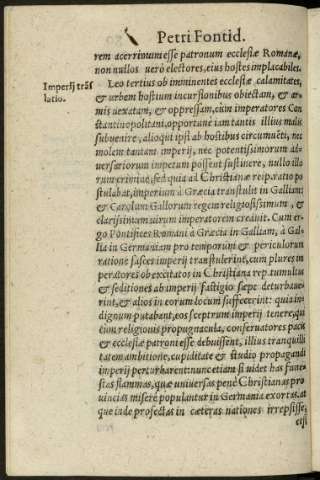 Petri Fontid.
rem acerrimum esse patronum ecclesiæ Romanæ,
non nullos uerò electores, eius hostes implacabiles.
Imperij trãs
latio.
Leo tertius ob imminentes ecclesiæ calamitates,
& urbem hostium incursionibus obiectam, & ar=
mis uexatam, & oppressam, cùm imperatores Con
stantinopolitani, opportunè iam tantis illius malis
subuenire, alioqui ipsi ab hostibus circumuẽti, nec
molem tantam imperij, nec potentissimorum ad=
uersariorum impetum possent sustinere, nullo illo
rum crimine, sed quia ad Christianæ reip. ratio po
stulabat, imperium à Græcia transtulit in Galliam:
& Carolum Gallorum regem religiosissimum, &
clarissimum uirum imperatorem creauit. Cum er=
go Pontifices Romani à Græcia in Galliam, à Gal=
lia in Germaniam pro temporum & periculorum
ratione fasces imperij transtulerint, cum plures im
peratores ob excitatos in Christiana rep. tumultus
& seditiones ab imperij fastigio sæpe deturbaue=
rint, & alios in eorum locum suffecerint: quia in=
dignum putabant, eos sceptrum imperij tenere, qui
cùm religionis propugnacula, conseruatores pacis
& ecclesiæ patroni esse debuissent, illius tranquilli
tatem ambitione, cupiditate & studio propagandi
imperij perturbarent: nunc etiam si uidet has fune=
stas flammas, quæ uniuersas penè Christianas pro
uincias miserè populantur in Germania exortas, at
que inde profectas in cæteras nationes irrepsisse,
etsi